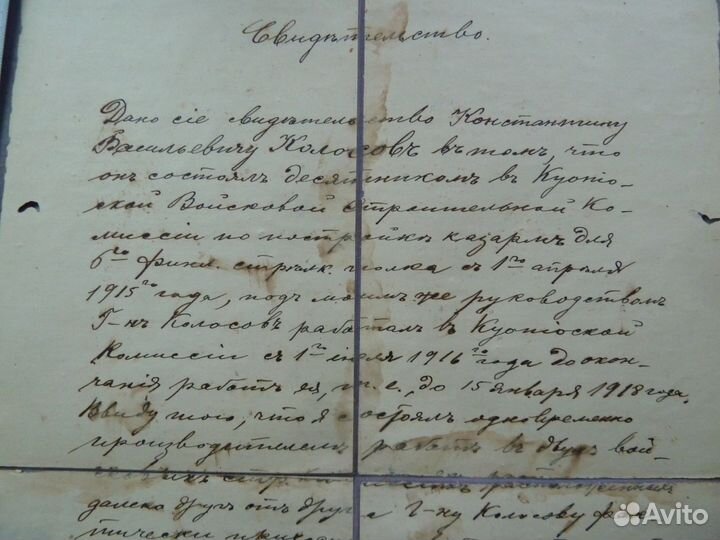 Свидѣтельство.
Дано сіе свидѣтельство Константину
Васильевичу Колосовъ въ томъ, что
онъ состоялъ десятникомъ въ Куопіо-
ской Войсковой Строительной Ко-
миссіи по постройкѣ казармъ для
6го Финл. стрѣлк. полка съ 1го апрѣля
1915го года, подъ моимъ же руководствомъ
Г-нъ Колосовъ работалъ въ Куопіоской
Комиссіи съ 1го іюля 1916го года до окон-
чанія работъ ея, т. е., до 15 января 1918 года.
Ввиду того, что я состоялъ одновременно
производителемъ работъ въ двухъ вой-
сковыхъ расположенныхъ
далеко другъ отъ друга Г-ну Колосову фак-
тически
Avito